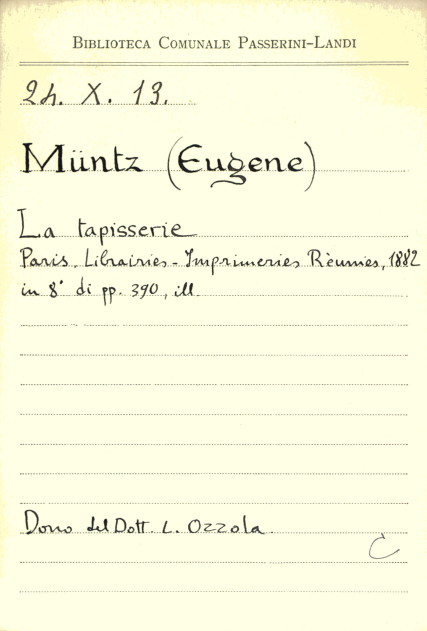 BIBLIOTECA COMUNALE PASSERINI-LANDI
2h. X. 13.
Müntz (Eugene)
La tapisserie
Paris. Librairies - Imprimeries Rèunies, 1882
in 8° di pp. 390, ill.
Dono del Dott. L. Ozzola.
C